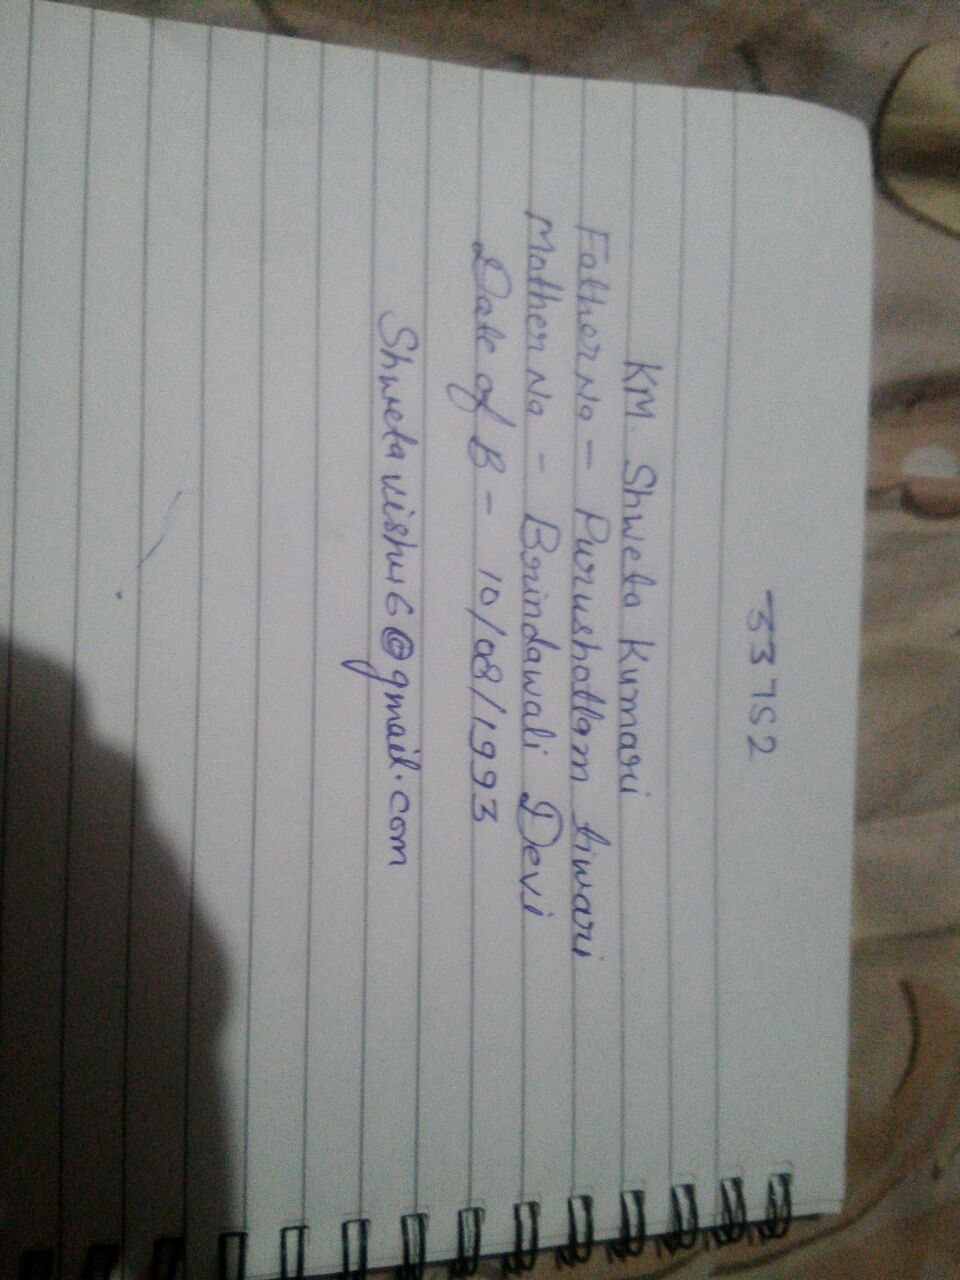 33752
KM. Shweta Kumari
Father Na - Purushottam tiwari
Mother Na - Brindawali Devi
Date of B - 10/08/1993
Shwetavishu6@gmail.com